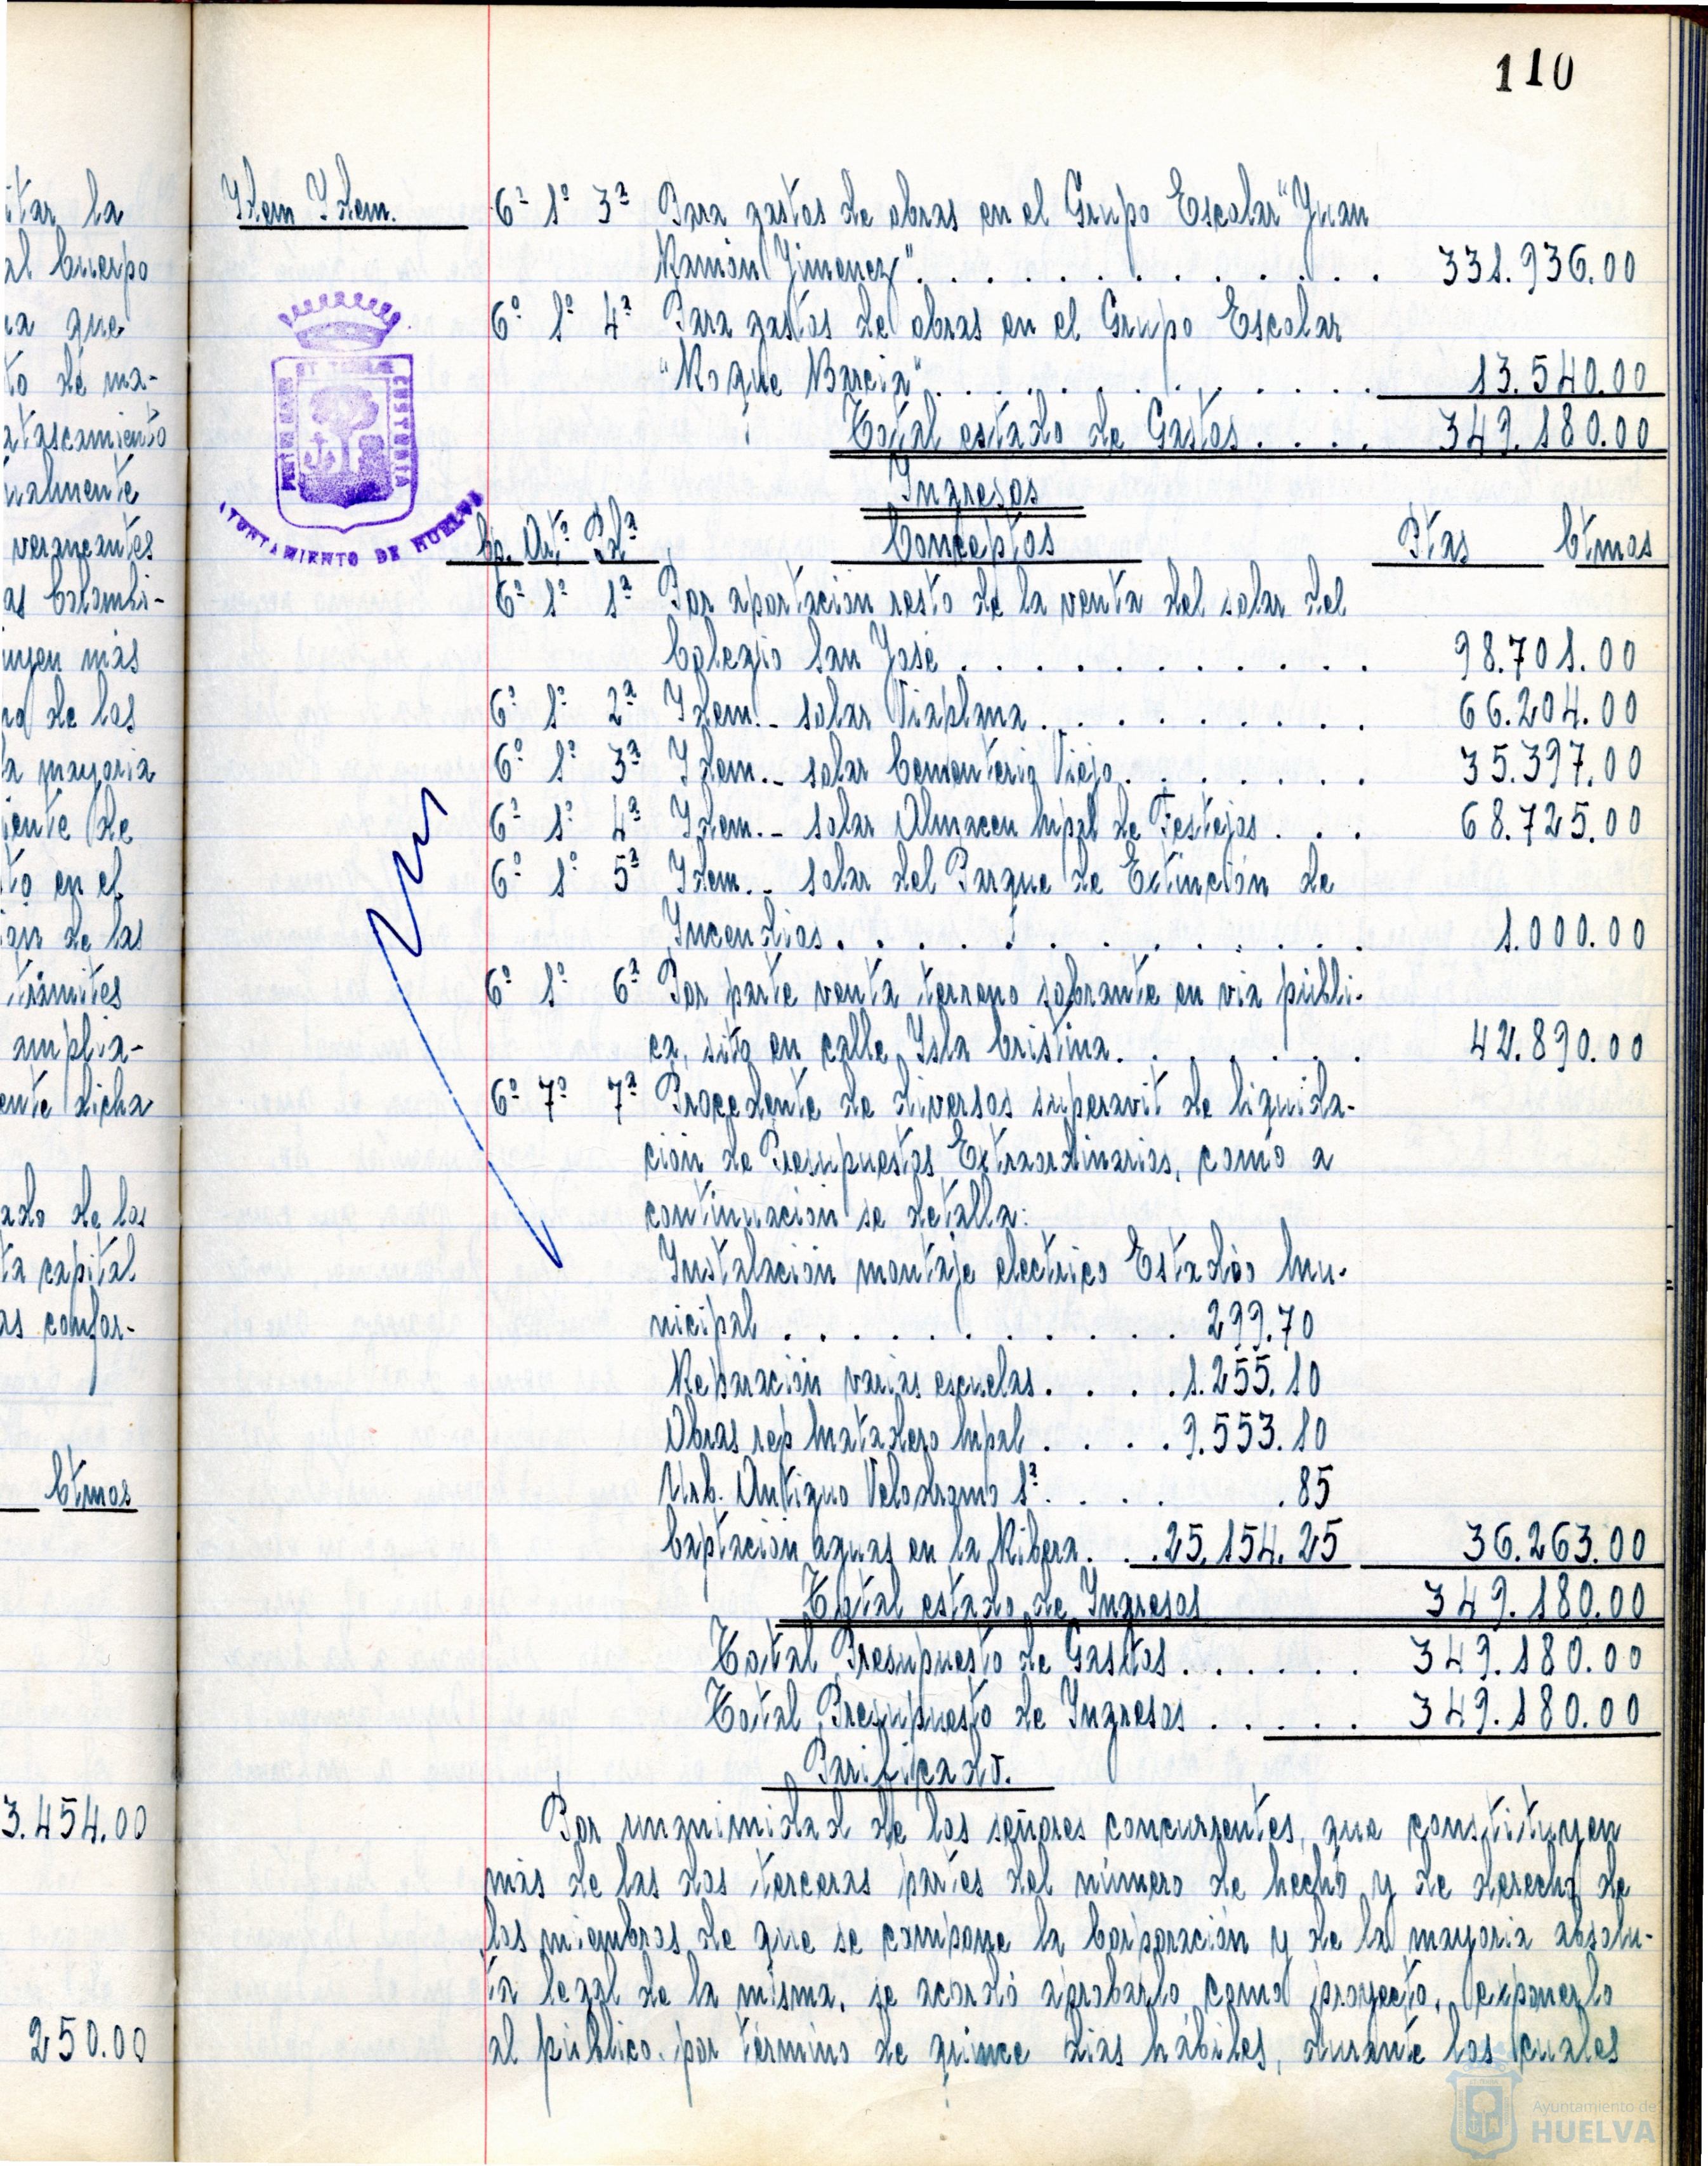 110
itar la
al Cuerpo
que
to de ma-
atascamiento
ualmente
veraneantes
as Colombi-
uyen más
de las
la mayoria
iente de
to en el
de las
trámites
amplia-
ente dicha
ado de los
ta capital
as confor-
Ctmos
3.454.00
250.00
Idem Idem.
AYUNTAMIENTO DE HUELVA
6º 1º 3ª Para gastos de obras en el Grupo Escolar "Juan
Ramón Jimenez". . . . . . . . . . . . . 331.936.00
6º 1º 4ª Para gastos de obras en el Grupo Escolar
"Roque Barcia". . . . . . . . . . . . 13.540.00
Total estado de Gastos. . . . 349.180.00
Ingresos
Cp. Artº Pdª Conceptos Ptas Ctmos
6º 1º 1ª Por aportación resto de la venta del solar del
Colegio San José . . . . . . . . . . . 98.701.00
6º 1º 2ª Idem.- solar Viaplana. . . . . . . . . 66.204.00
6º 1º 3ª Idem.- solar Cementerio Viejo. . . . . . . 35.397.00
6º 1º 4ª Idem.- Solar Almacen Mpal de Festejos . . . 68.725.00
6º 1º 5ª Idem.- Solar del Parque de Extinción de
Incendios. . . . . . . . . . . . . 1.000.00
6º 1º 6ª Por parte venta terreno sobrante en via públi-
ca, sito en calle Isla Cristina. . . . . . . 42.890.00
6º 7º 7ª Procedente de diversos superavit de liquida-
ción de Presupuestos Extraordinarios, como a
continuación se detalla:
Instalación montaje electrico Estadio Mu-
nicipal . . . . . . . . . . . . 299.70
Reparación varias escuelas. . . . 1.255.10
Obras rep Matadero Mpal . . . . 9.553.10
Urb. Antiguo Velodromo 1ª. . . . .85
Captación aguas en la Ribera. . . 25.154.25 36.263.00
Total estado de Ingresos 349.180.00
Total Presupuesto de Gastos. . . . . . 349.180.00
Total Presupuesto de Ingresos . . . . . 349.180.00
Parificado.
Por unanimidad de los señores concurrentes, que constituyen
más de las dos terceras partes del número de hecho y de derecho de
los miembros de que se compone la Corporación y de la mayoria absolu-
ta legal de la misma, se acordó aprobarlo como proyecto, exponerlo
al público por término de quince dias hábiles, durante los cuales
Ayuntamiento de
HUELVA